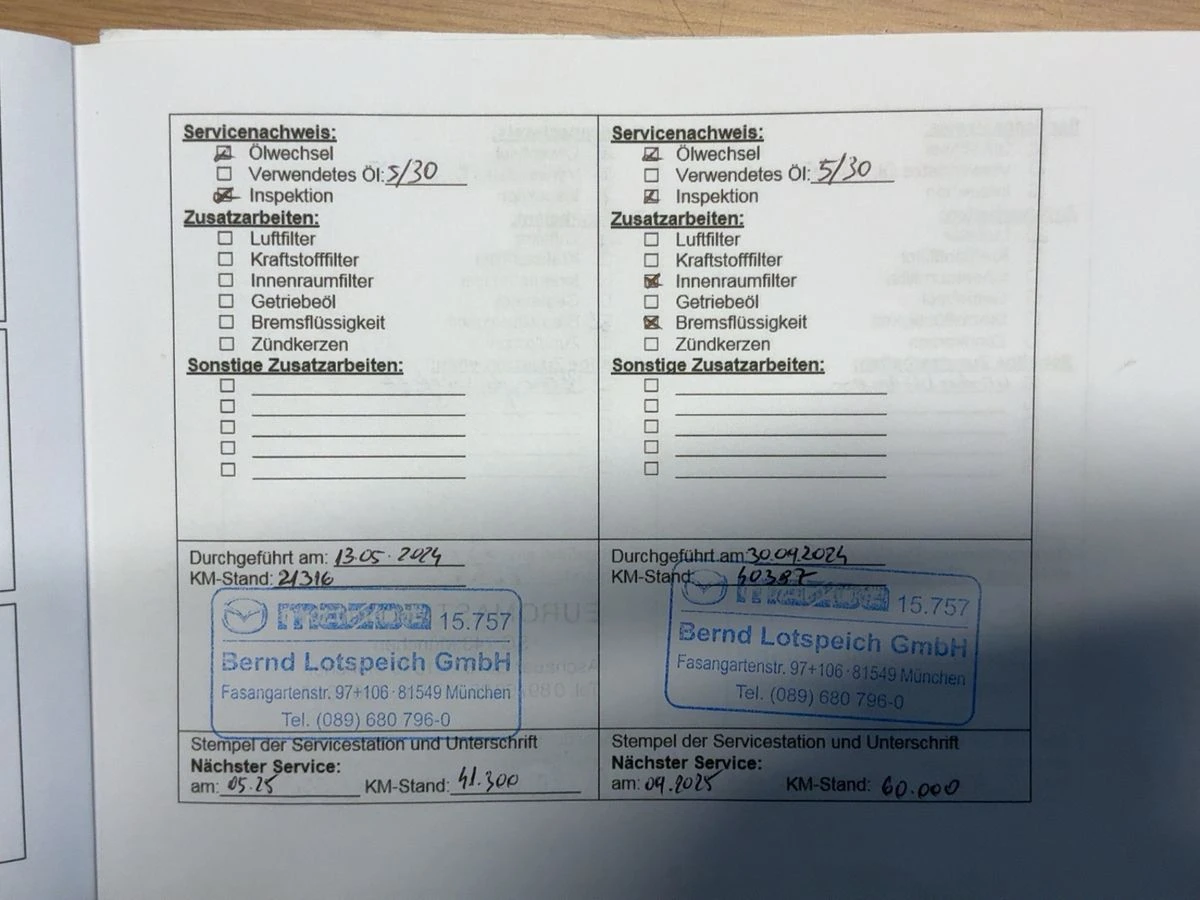 Servicenachweis:
Ölwechsel
Verwendetes Öl: 5/30
Inspektion
Zusatzarbeiten:
Luftfilter
Kraftstofffilter
Innenraumfilter
Getriebeöl
Bremsflüssigkeit
Zündkerzen
Sonstige Zusatzarbeiten:
Durchgeführt am: 13.05.2024
KM-Stand: 21316
mazda 15.757
Bernd Lotspeich GmbH
Fasangartenstr. 97+106 · 81549 München
Tel. (089) 680 796-0
Stempel der Servicestation und Unterschrift
Nächster Service:
am: 05.25 KM-Stand: 41.300
Servicenachweis:
Ölwechsel
Verwendetes Öl: 5/30
Inspektion
Zusatzarbeiten:
Luftfilter
Kraftstofffilter
Innenraumfilter
Getriebeöl
Bremsflüssigkeit
Zündkerzen
Sonstige Zusatzarbeiten:
Durchgeführt am: 30.09.2024
KM-Stand: 40387
mazda 15.757
Bernd Lotspeich GmbH
Fasangartenstr. 97+106 · 81549 München
Tel. (089) 680 796-0
Stempel der Servicestation und Unterschrift
Nächster Service:
am: 09.2025 KM-Stand: 60.000